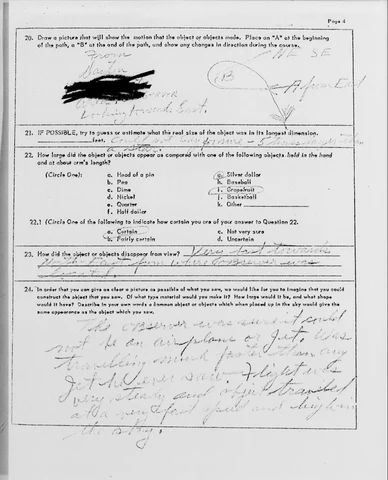 Page 4
20. Draw a picture that will show the motion that the object or objects made. Place an "A" at the beginning
of the path, a "B" at the end of the path, and show any changes in direction during the course.
From
NE SE
B
A
Looking toward East.
21. IF POSSIBLE, try to guess or estimate what the real size of the object was in its longest dimension.
feet.
22. How large did the object or objects appear as compared with one of the following objects held in the hand
and at about arm's length?
(Circle One):
a. Head of a pin
b. Pea
c. Dime
d. Nickel
e. Quarter
f. Half dollar
g. Silver dollar
h. Baseball
i. Grapefruit
j. Basketball
k. Other
22.1 (Circle One of the following to indicate how certain you are of your answer to Question 22.
a. Certain
b. Fairly certain
c. Not very sure
d. Uncertain
23. How did the object or objects disappear from view? Very fast towards
from where observer was
located.
24. In order that you can give as clear a picture as possible of what you saw, we would like for you to imagine that you could
construct the object that you saw. Of what type material would you make it? How large would it be, and what shape
would it have? Describe in your own words a common object or objects which when placed up in the sky would give the
same appearance as the object which you saw.
The observer was sure it could
not be an airplane or jet. Was
travelling much faster than any
jet he ever saw. Flight was
very steady and object traveled
at a very fast speed and high in
the sky.